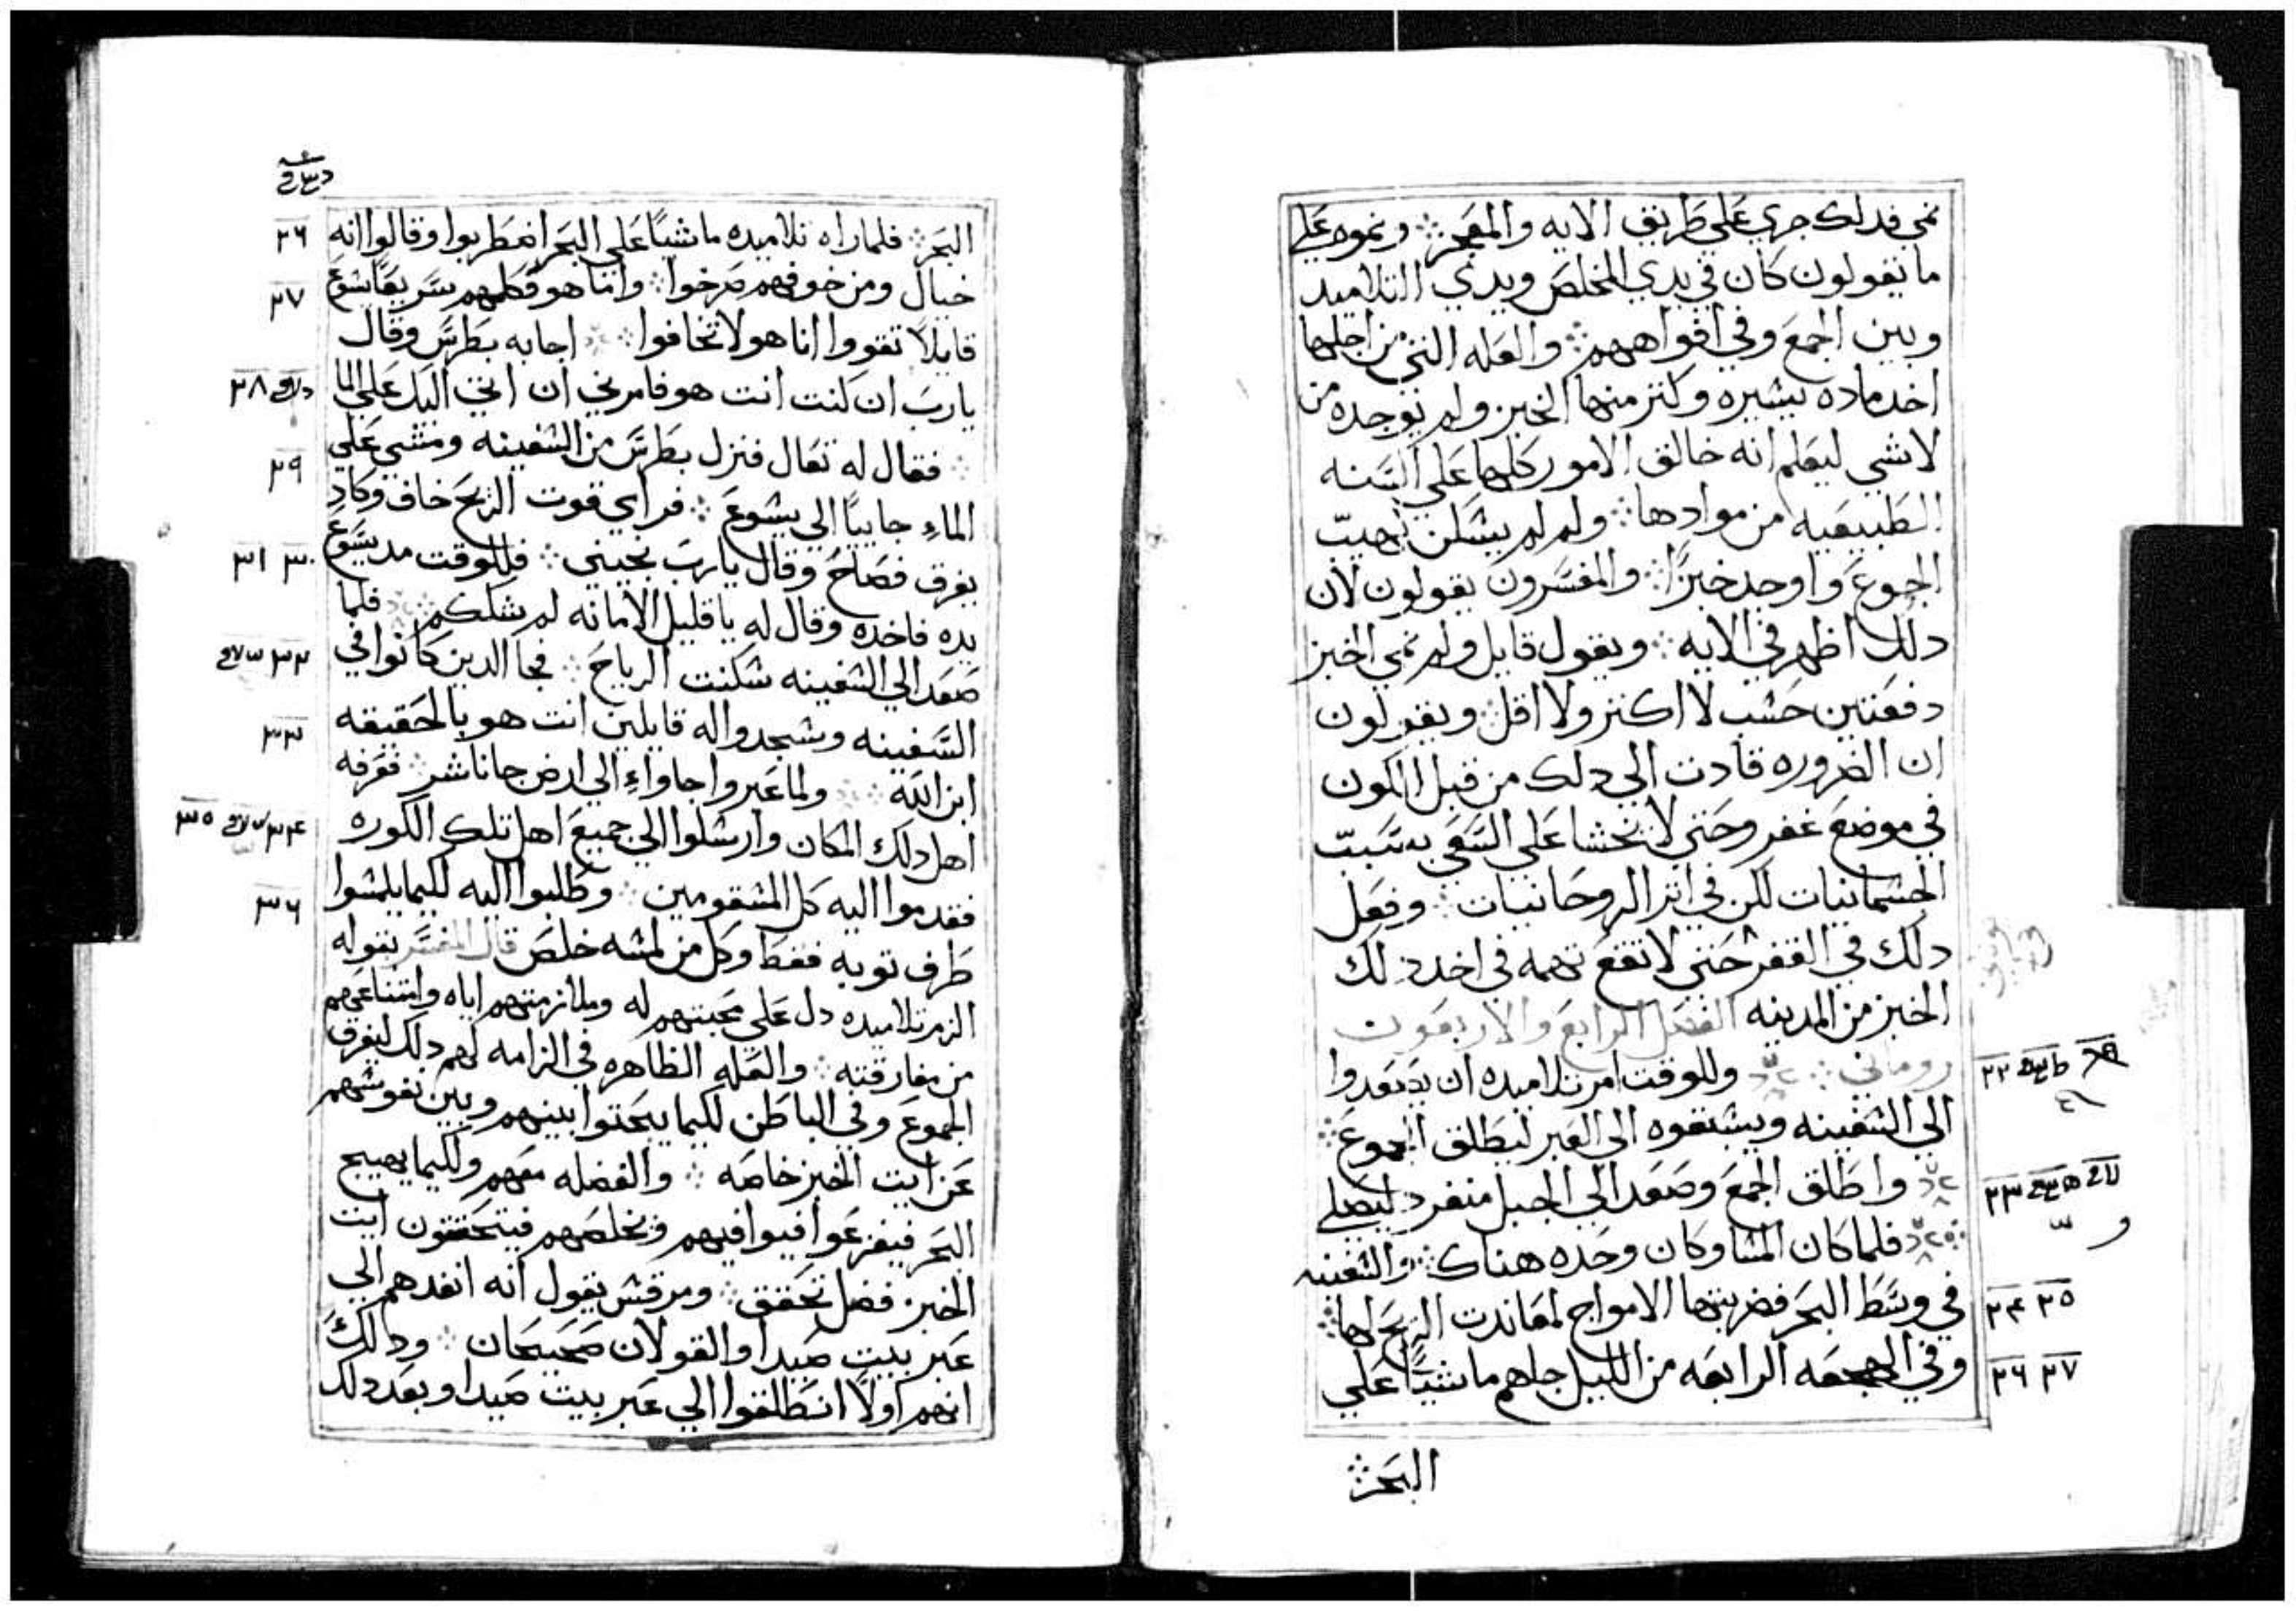 نمي فدلك جري علي طريق الايه والمعجز ونموه علي
ما تقولون كان في يدي المخلص ويدي التلاميد
وبين الجمع وفي افواههم والعله التي من اجلها
اخد ماده يشيره وكثر منها الخبز ولم يوجده من
لاشي ليعلم انه خالق الامور كلها علي السنه
الطبيعيه من موادها ولم لم يشكن لهيب
الجوع واوجد خبزًا والمفسرون يقولون لان
دلك اظهر في الايه ويقول قايل ولم نمي الخبز
دفعتين حشب لا اكثر ولا اقل ويقولون
ان الضروره قادت الي دلك من قبل الكون
في موضع غفر وحتي لا نحشا علي السعي بسبب
الجشمانيات لكن في اثر الروحانيات وفعل
دلك في القفر حتي لا تقع تهمه في اخد دلك
الخبز من المدينه الفصل الرابع والاربعون
روماني وللوقت امر تلاميده ان يصعدوا
الي الشفينه ويشبقوه الي العبر ليطلق الجموع
واطلق الجمع وصعد الي الجبل منفرد ليصلي
فلما كان المشا وكان وحده هناك والشفينه
في وسط البحر فضربتها الامواج لمعاندت الريح لها
وفي الهجعه الرابعه من الليل جاهم ماشيًا علي
البحر
٢٢
٢٣
٢٤ ٢٥
٢٦ ٢٧
البحر فلما راه تلاميده ماشيًا علي البحر اضطربوا وقالوا انه
خيال ومن خوفهم صرخوا واما هو فكلمهم سريعًا يشوع
قايلاً تقووا انا هو لا تخافوا اجابه بطرس وقال
يارب ان كنت انت هو فامرني ان اتي اليك علي الما
فقال له تعال فنزل بطرس من الشفينه ومشي علي
الماء جاييًا الي يشوع فراي قوت الريح خاف وكاد
يغرق فصاح وقال يارب نجيني فللوقت مد يسوع
يده فاخده وقال له يا قليل الامانه لم شككم فلما
صعد الي الشفينه شكنت الرياح فجا الدين كانوا في
السفينه وشجدوا له قايلين انت هو بالحقيقه
ابن الله ولما عبروا جاواء الي ارض جاناشر فعرفه
اهل دلك المكان وارشلوا الي جميع اهل تلك الكوره
فقدموا اليه كل المشقومين وطلبوا اليه لكيما يلمشوا
طرف توبه فقط وكل من لمشه خلص قال المفسر بقوله
الزم تلاميده دل علي محبتهم له وملازمتهم اياه وامتناعهم
من مفارقته والعله الظاهره في الزامه لهم دلك ليفرق
الجموع وفي الباطن لكيما يبحتوا بينهم وبين نفوشهم
عن ايت الخبز خاصه والفضله معهم ولكيما يهيج
البحر فيفزعوا فيوافيهم ونخلصهم فيتحققون ايت
الخبز فضل تحقق ومرقش يقول انه انفدهم الي
عبر بيت صيدا والقولان صحيحان ودلك
انهم اولاً انطلقوا الي عبر بيت صيدا وبعد دلك
٢٦
٢٧
٢٨
٢٩
٣٠ ٣١
٣٢
٣٣
٣٤ ٣٥
٣٦